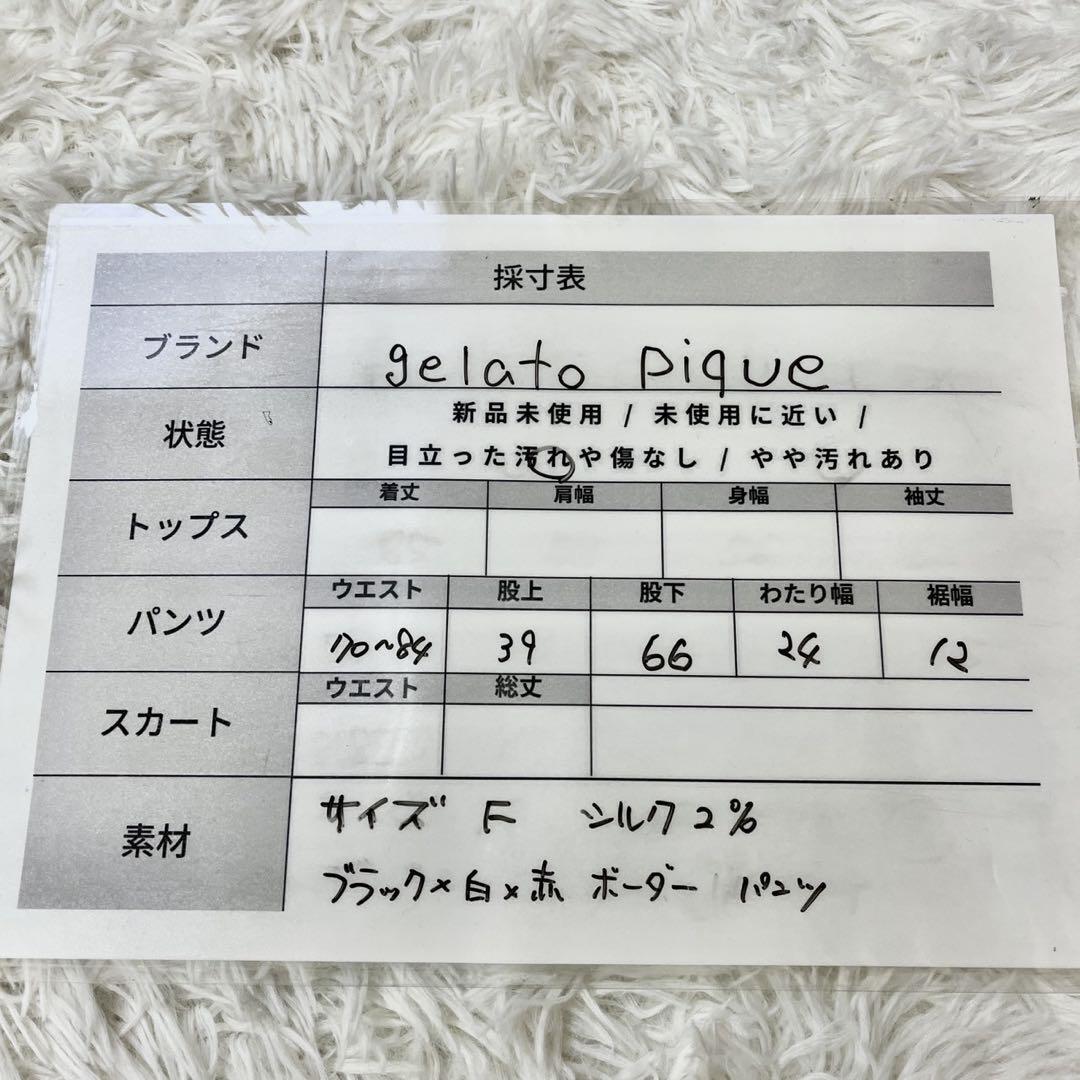 採寸表
ブランド gelato pique
状態 新品未使用 / 未使用に近い /
目立った汚れや傷なし / やや汚れあり
トップス 着丈 肩幅 身幅 袖丈
パンツ ウエスト 股上 股下 わたり幅 裾幅
70~84 39 66 24 12
スカート ウエスト 総丈
素材 サイズ F シルク2%
ブラック×白×赤 ボーダー パンツ